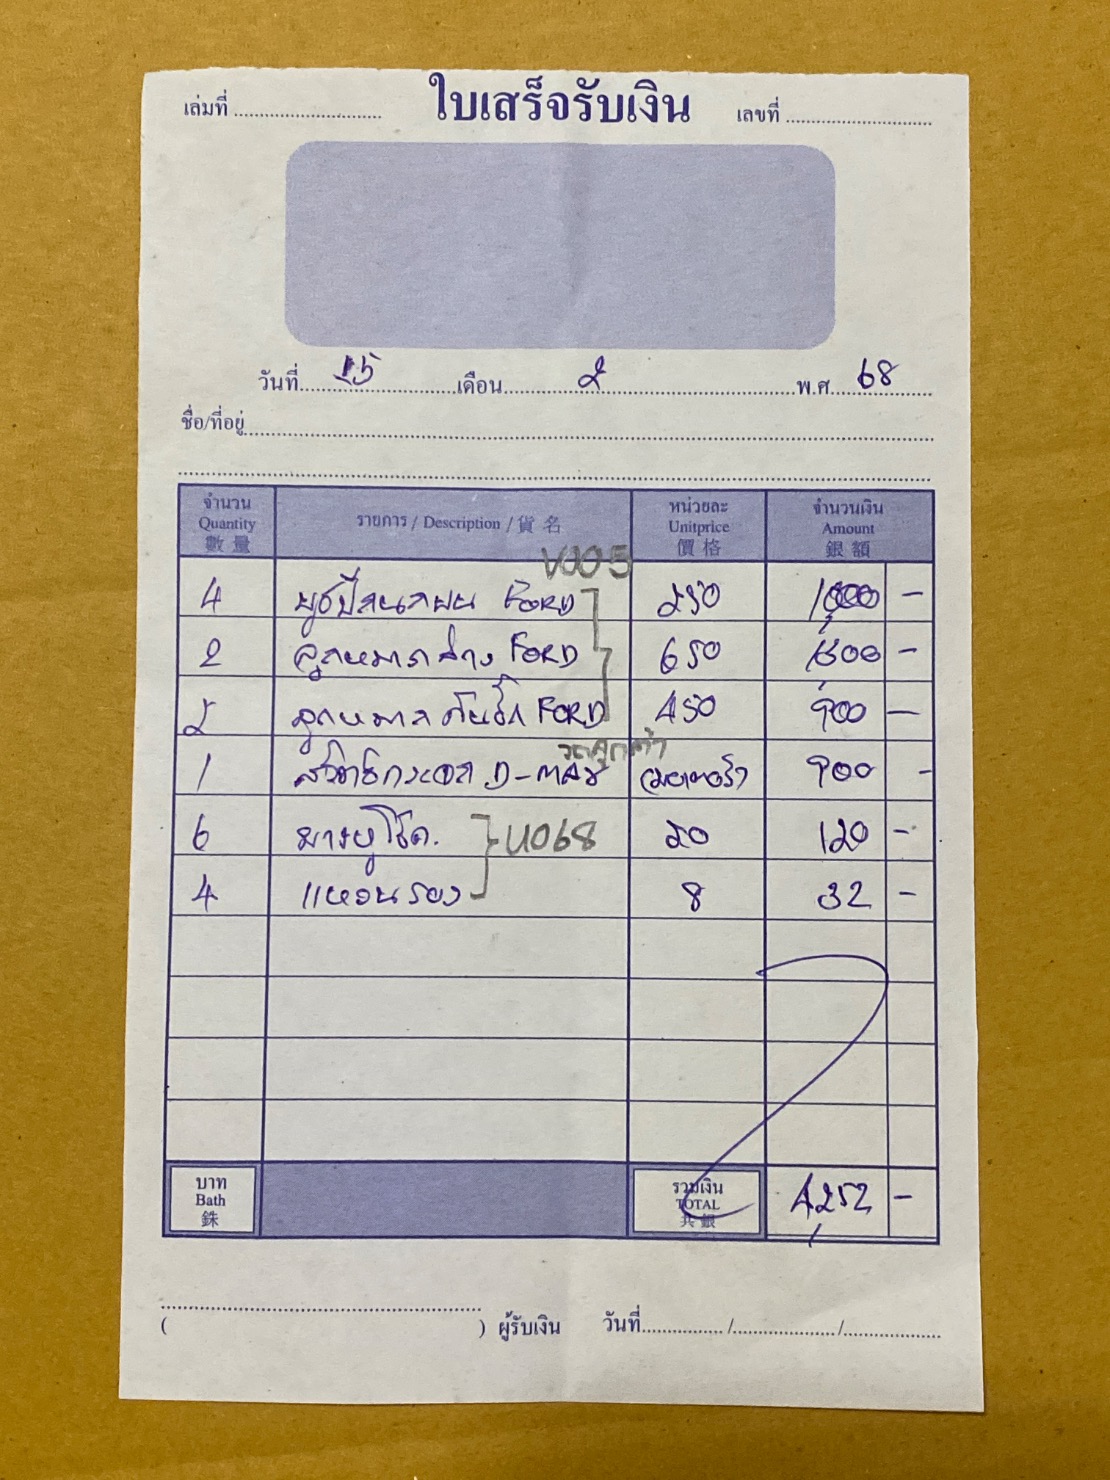 ใบเสร็จรับเงิน
เล่มที่ เลขที่
วันที่ 15 เดือน 2 พ.ศ. 68
ชื่อ/ที่อยู่
จำนวน รายการ / Description / 貨名 หน่วยละ จำนวนเงิน
Quantity Unitprice Amount
數量 價格 銀額
4 บูชปีกนกบน FORD 250 1,000 -
2 ลูกหมากล่าง FORD 650 1,300 -
2 ลูกหมากคันชัก FORD 450 900 -
รถลูกค้า
1 สวิตซ์กระจก D-MAX 900 -
6 ยางหูโช๊ค. U068 20 120 -
4 แหวนรอง 8 32 -
บาท รวมเงิน 4,252 -
Bath TOTAL
銖 共銀
( ) ผู้รับเงิน วันที่ / /